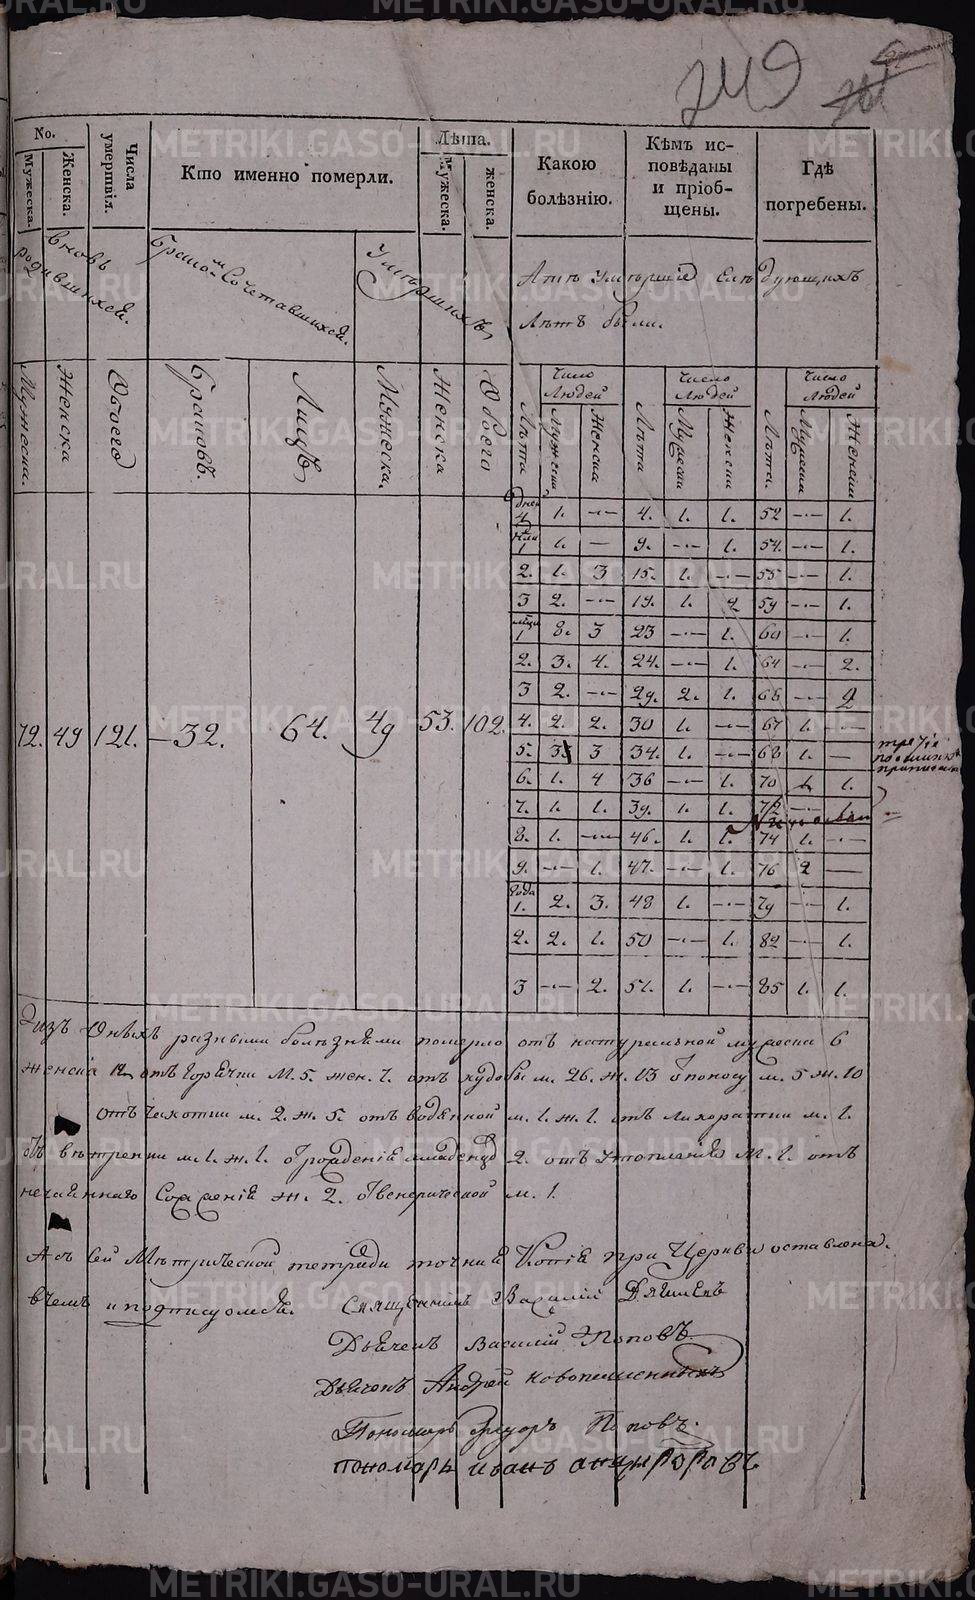 249
No.
Мужеска.
Женска.
Числа умертвія.
Кто именно померли.
Лѣта.
Мужеска.
женска.
Какою болѣзнію.
Кѣмъ исповѣданы и пріобщены.
Гдѣ погребены.
вновь родившихся.
браком Сочетавшихся.
Умершихъ
Аше умершіе Слѣдующихъ
Лѣтъ были.
Мужеска.
Женска
Обоего
Браковъ.
Лицъ
Мужеска.
Женска
Обоего
Лѣта
Число Людей
Мужеска
Женска
Лѣта
Число Людей
Мужеска
Женска
Лѣта.
Число Людей
Мужеска
Женска
72. 49 121. 32. 64. 49 53. 102.
дней 4 1. — 4. 1. 1. 52 — 1.
1 1. — 9. — 1. 54. — 1.
2. 1. 3 15. 1. — 55 — 1.
3 2. — 19. 1. 2 59 — 1.
1 8. 3 23 — 1. 60 — 1.
2. 3. 4. 24. — 1. 64 — 2.
3 2. — 29. 2. 1. 66 — 2
4. 2. 2. 30 1. — 67 1. —
5. 3 3 34. 1. — 68 1. —
6. 1. 4 36 — 1. 70 1.
7. 1. 1. 39. 1. 1. 72 — 1.
8. 1. — 46. 1. 1. 74 1. —
9. — 1. 47. — 1. 76 2 —
года 1. 2. 3. 48 1. — 79 — 1.
2. 2. 1. 50 — 1. 82 — 1.
3 — 2. 51. 1. — 85 1. 1.
изъ Оныхъ разными болѣзнями померло отъ натуральной мужеска 6
женска 12 отъ Горячки М. 5. жен. 7. отъ худобы м. 26. ж. 13 Отъ поносу м. 5 ж. 10
отъ Чахотки м. 2. ж. 5. отъ водяной м. 1. ж. 1. отъ лихоратки м. 1.
м. 1. ж. 1. 2. отъ утопленія м. 1. отъ
нечаяннаго ж. 2. венерической м. 1.
Асъ Сей Метрической тетради точная Копія при Церкви оставлена.
вчемъ и подписуемся. Священникъ Василій
Дьячекъ Василій Поповъ.
Дьячекъ Андрей
Пономарь Федоръ Поповъ.
пономарь иванъ
METRIKI.GASO-URAL.RU